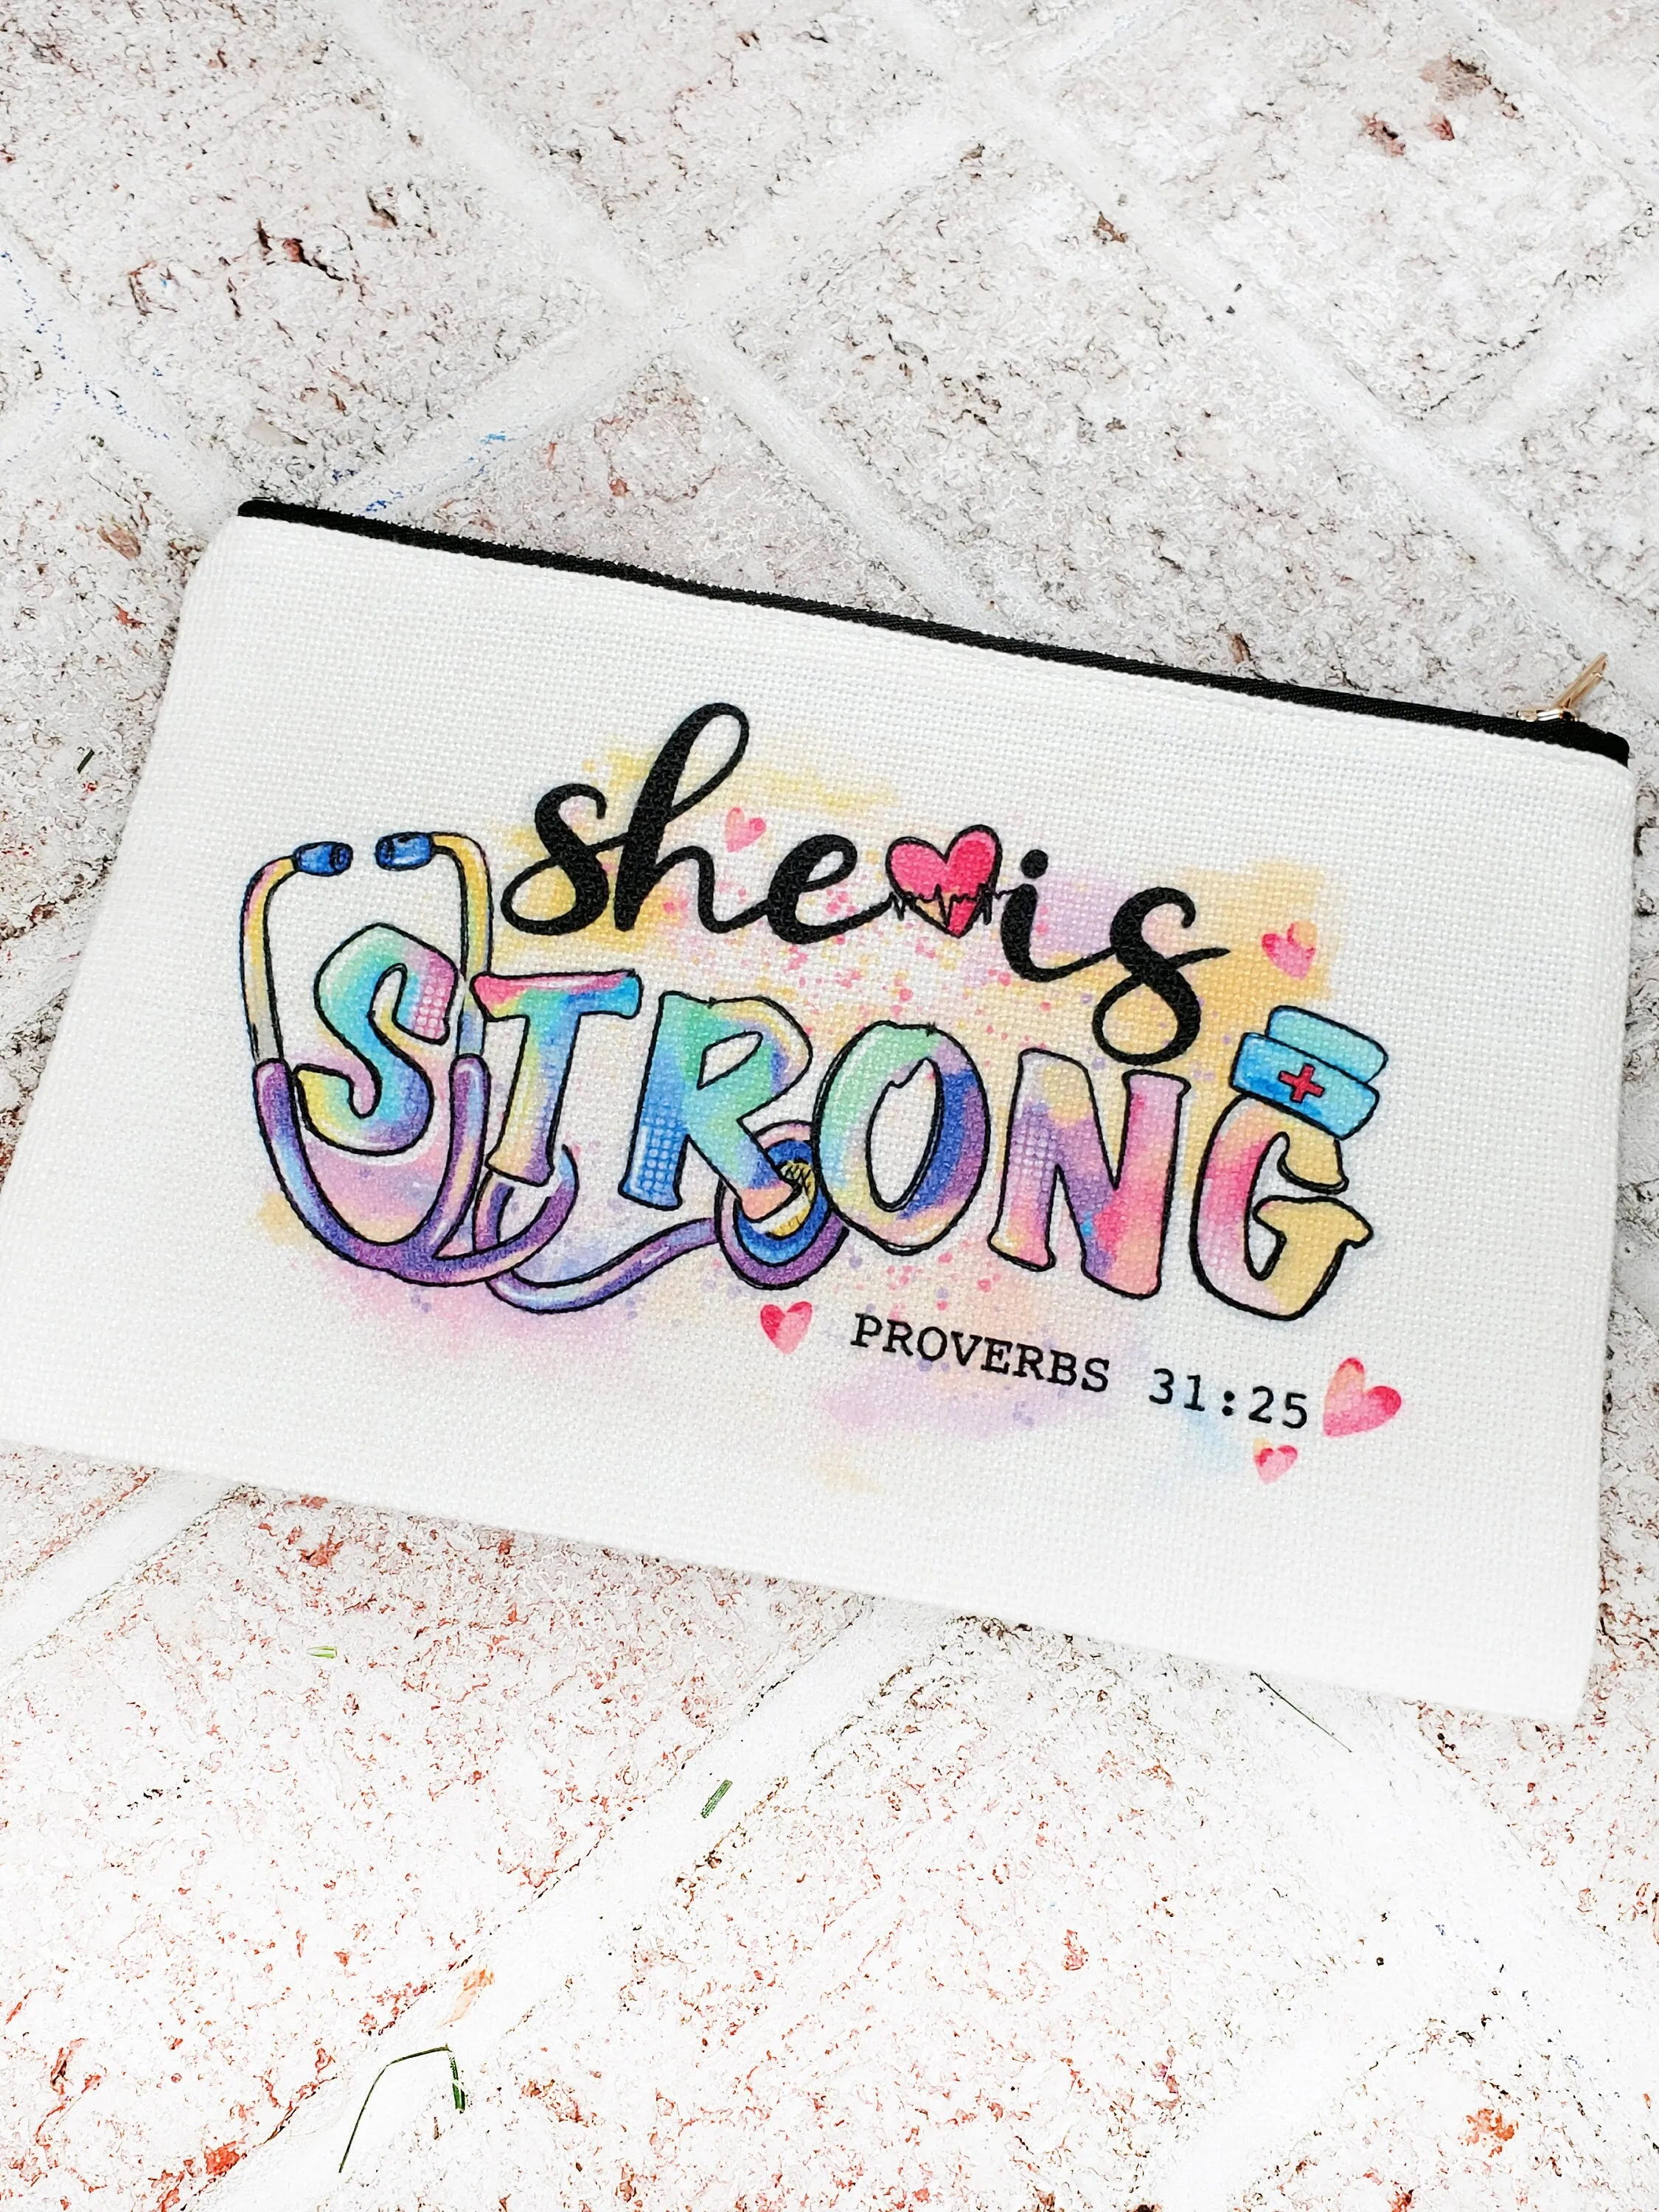 she is
STRONG
PROVERBS 31:25